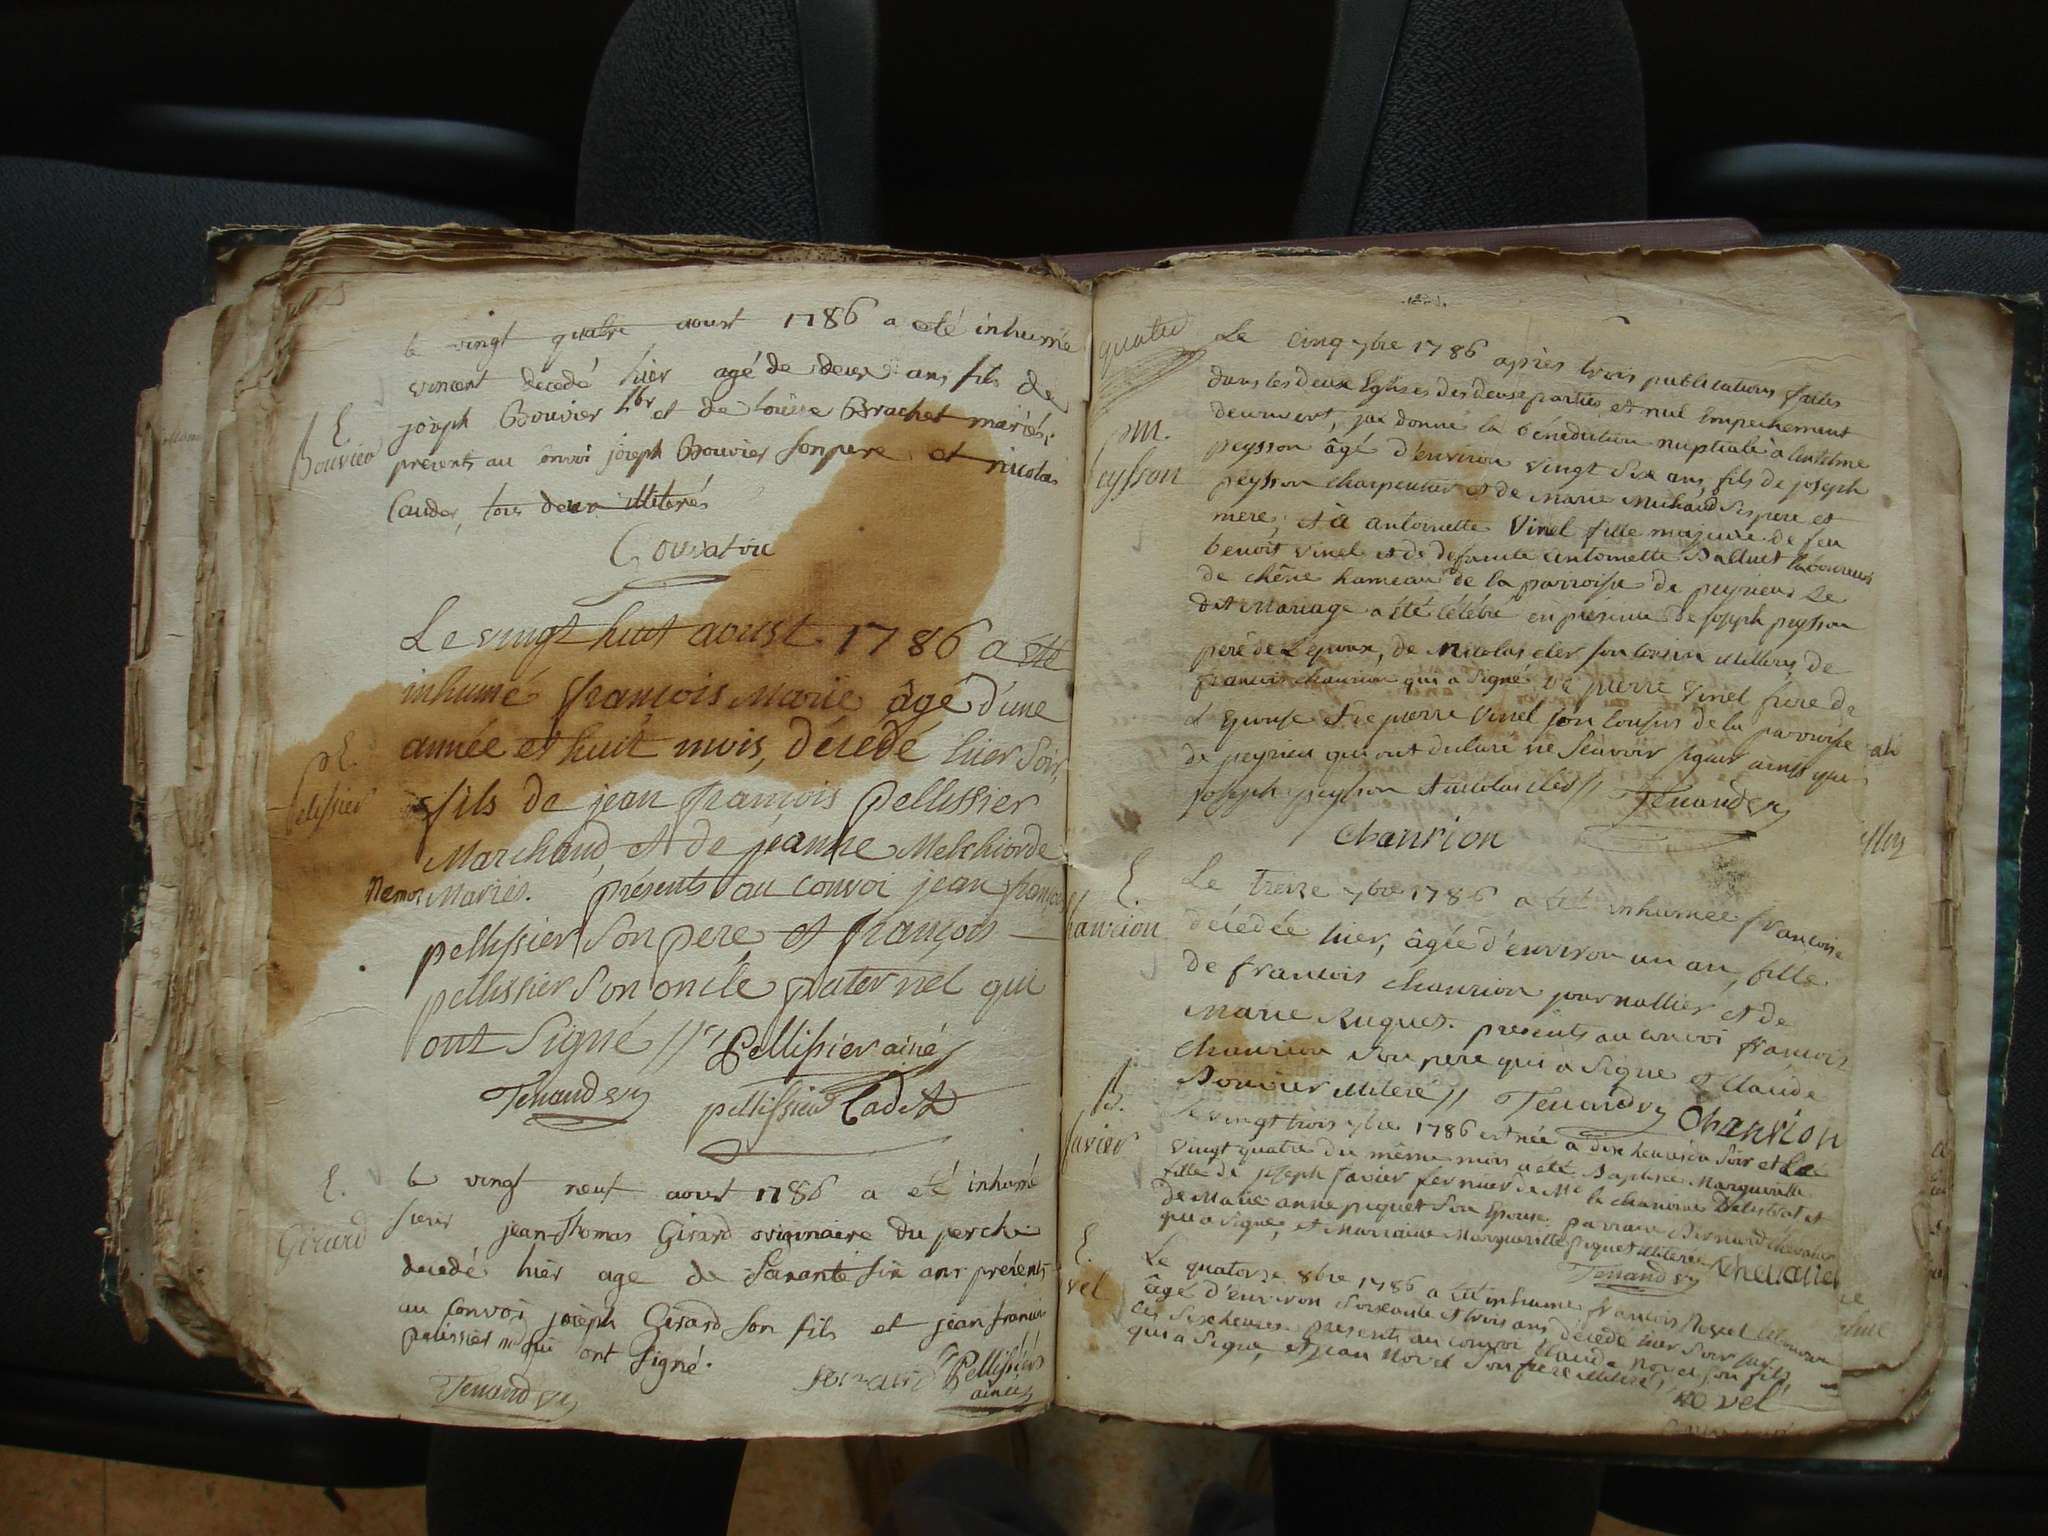 le vingt quatre aoust 1786 a eté inhumé
vincent decedé hier agé de deux ans fils de
joseph Bouvier lbr et de Louise Brachet mariés;
presents au convoi joseph Bouvier son pere et nicolas
Claude, tous deux illiterés
E.
Bouvier
Le vingt huit aoust 1786 a été
inhumé françois Marie âgé d'une
année et huit mois, décedé hier soir,
fils de jean françois pellissier
Marchand, et de jeanne Melchiorde
Mariés. présents au convoi jean françois
pellissier son pere, et françois
pellissier son oncle paternel qui
ont signé //
Pellissier ainé
Tenand vy
pellissier Cadet
pE.
pelissier
le vingt neuf aoust 1786 a eté inhumé
sieur jean Thomas Girard originaire du perche
decedé hier age de Soixante six ans présents
au Convoi joseph Girard son fils et jean francois
pelissier md qui ont signé.
Tenand vy
Pellissier
ainé
E.
Girard
Le cinq 7bre 1786 après trois publications faites
dans les deux Eglises des deux parties, et nul Empechement
decouvert, j'ai donné la bénédiction nuptiale à Anthelme
peysson âgé d'environ vingt six ans, fils de joseph
peysson charpentier et de Marie Michaud ses pere et
mere; et à antoinette Vinel fille majeure de feu
benoit Vinel et de defunte antoinette Balluet laboureurs
de chêne hameau de la parroisse de peyrieu. Le
dit Mariage a été célébré en présence de joseph peysson
père de L'epoux, de nicolas cler son cousin illiterés, de
francois chanrion qui a signé de pierre Vinel frere de
L'Epouse et de pierre Vinel son cousin de la parroisse
de peyrieu qui ont declaré ne sçavoir signer ainsi que
joseph peysson et nicolas cler //
Tenand vy
Chanrion
pm.
peysson
Le treize 7bre 1786 a été inhumée françoise
décédée hier, âgée d'environ un an, fille
de francois chanrion journallier et de
Marie Ruguet. présents au convoi francois
chanrion son pere qui a signé et Claude
Bouvier illiteré //
Tenand vy
Chanrion
E.
chanrion
Le vingt trois 7bre 1786 est née a dix heures du soir et Le
vingt quatre du même mois a été Baptisée Marguerite
fille de joseph favier fermier de Mr le chanoine Delestrat et
de Marie anne piquet son Epouse. parrain Bernard chevalier
qui a signé, et Marraine Marguerite piquet illiterée
Tenand vy
B.
favier
Le quatorze 8bre 1786 a été inhumé francois Novel laboureur
âgé d'environ soixante et trois ans, décedé hier soir sur
les six heures. présents au convoi Claude Novel son fils
qui a signé, et jean Novel son frere illiteré
novel
E.
vel